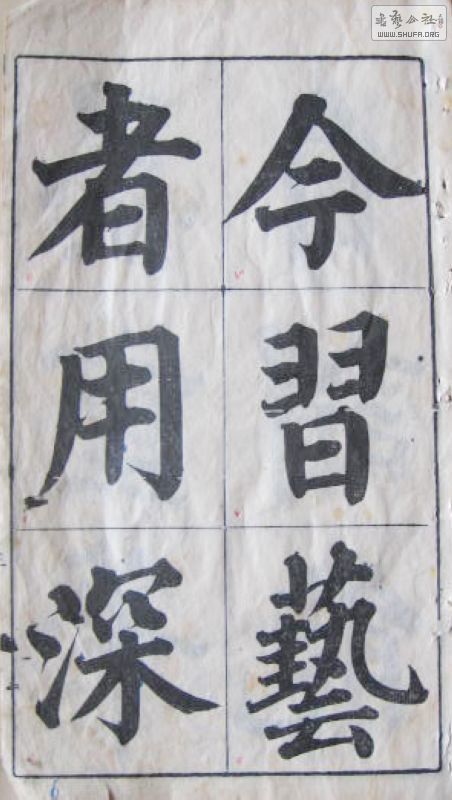 今習藝
者用深
书艺公社
WWW.SHUFA.ORG
6